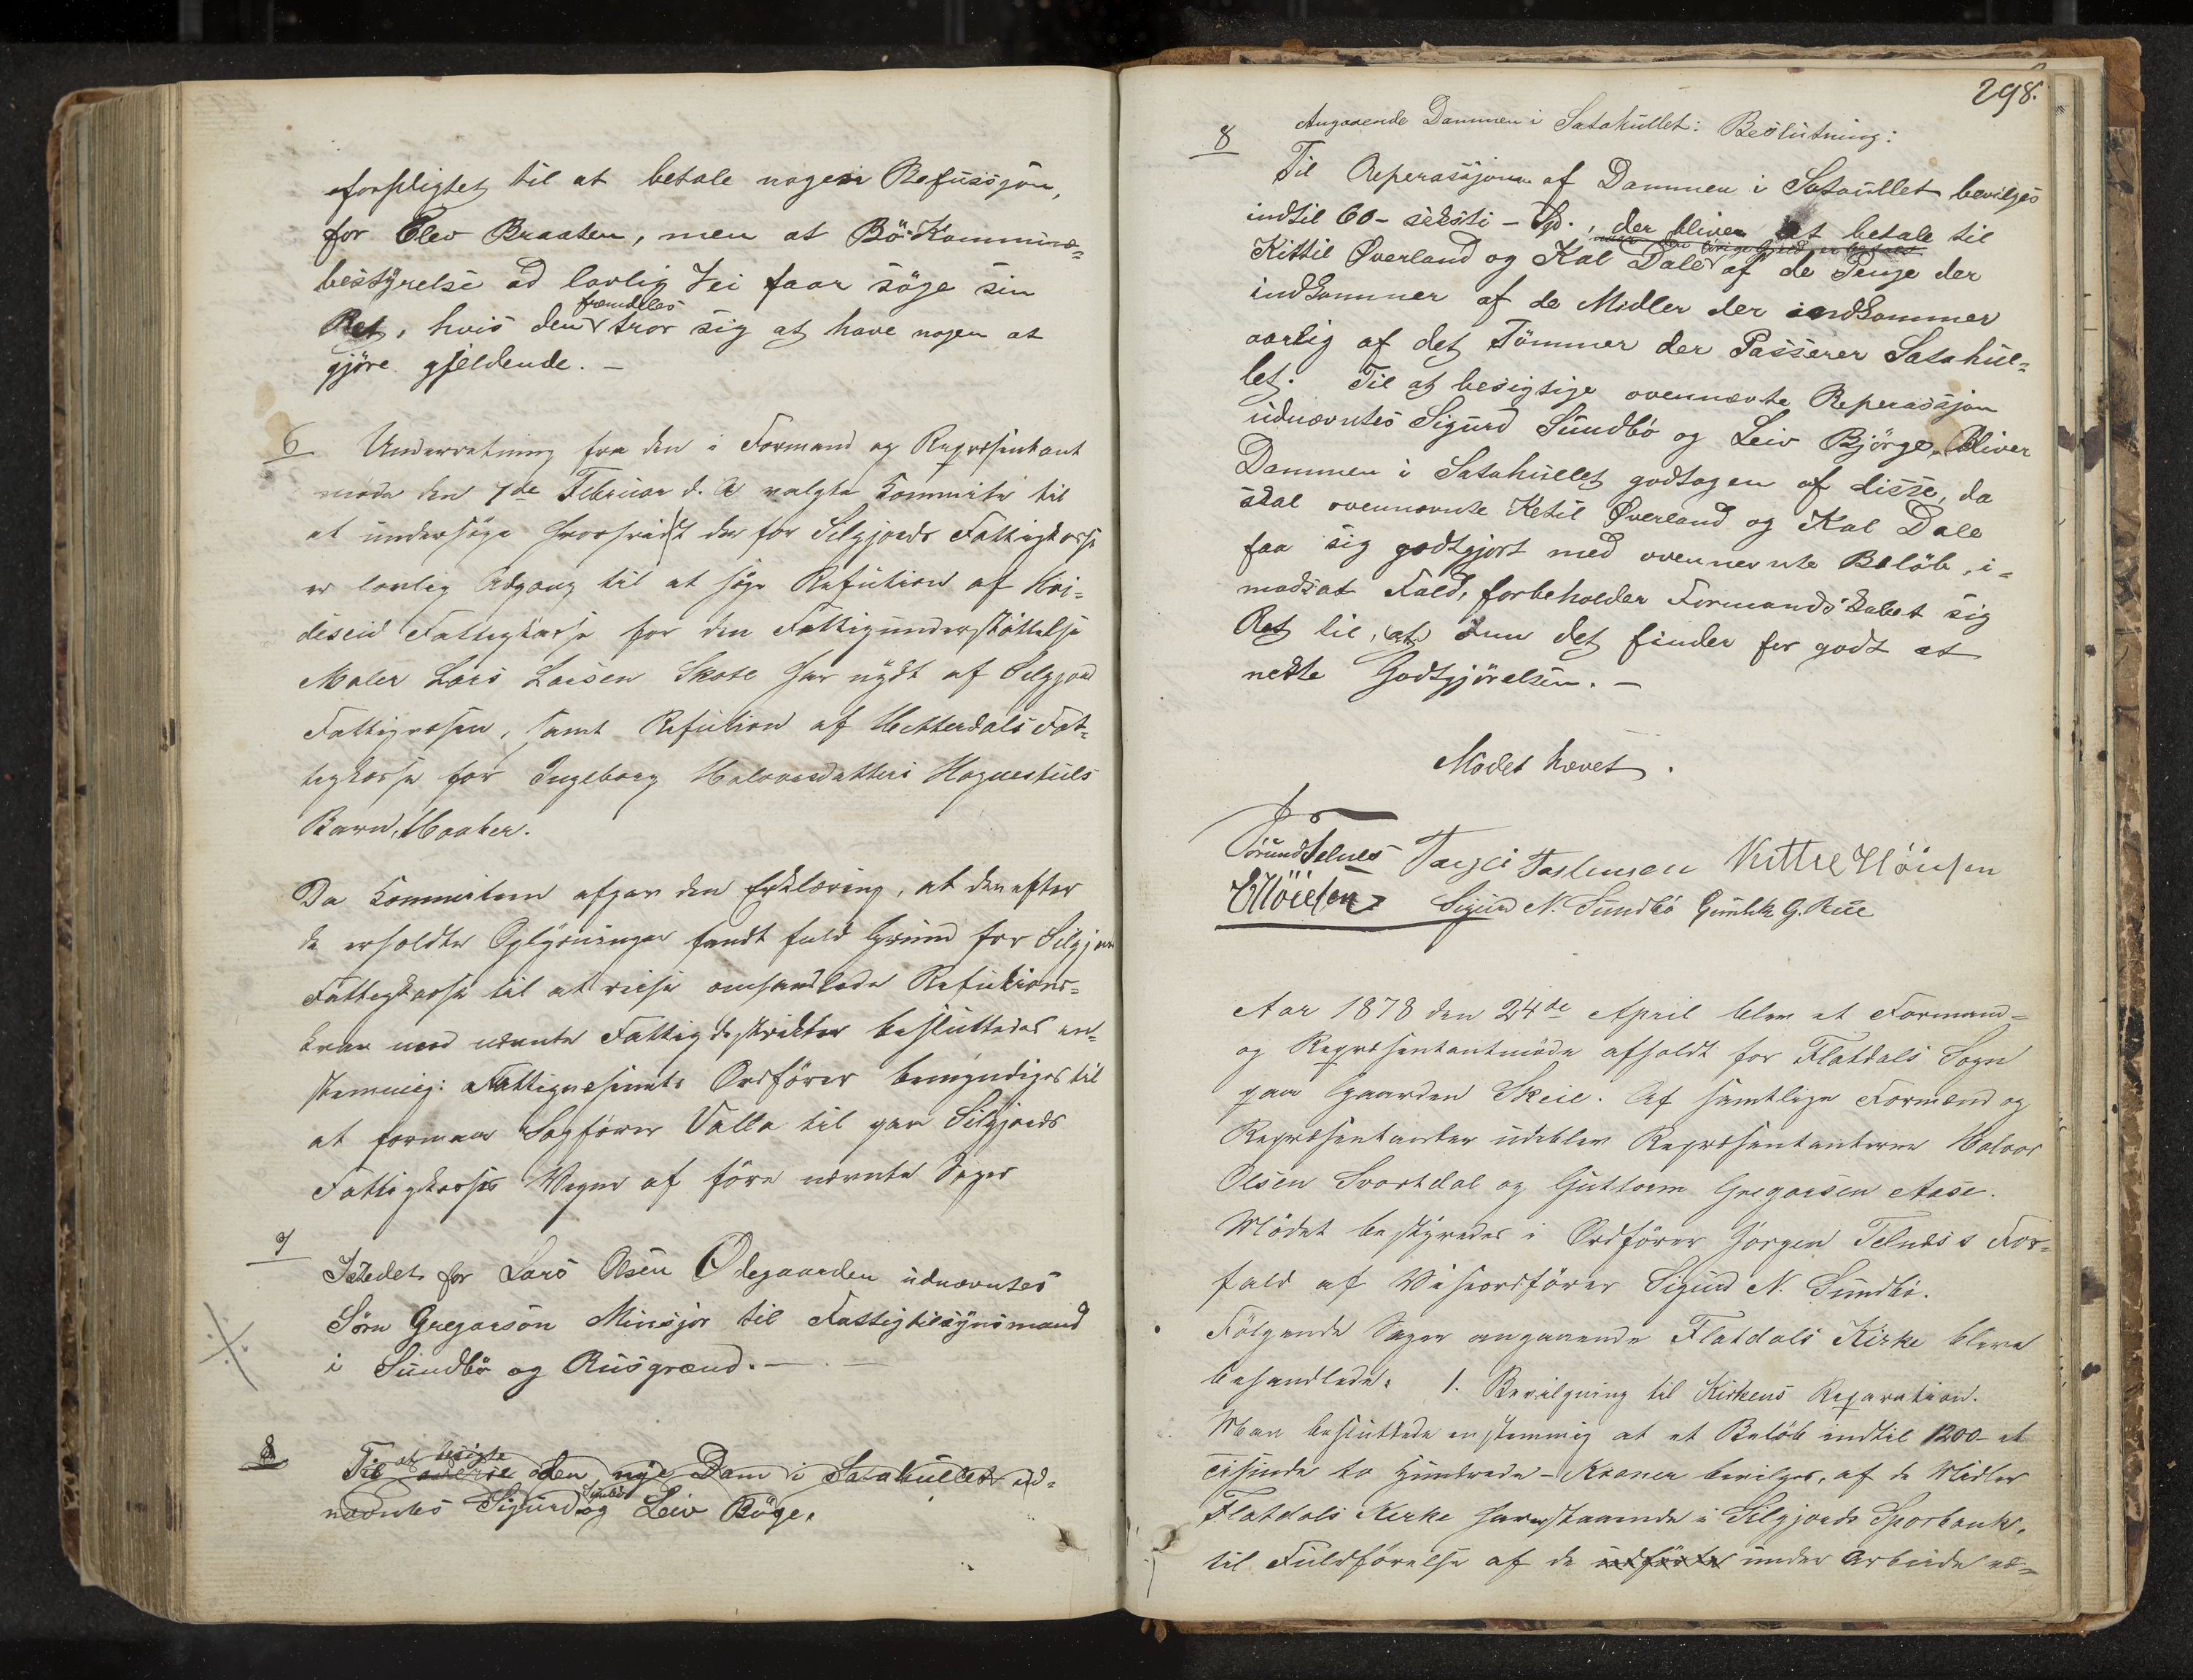 forpligtet til at betale nogen Refussjon,
for Olev Braaten, men at Bö Kommune=
bestyrelse ad lovlig Vei faar söge sin
Ret, hvis den fremdeles tror sig at have nogen at
gjöre gjeldende. —
6 Underretning fra den i Formand og Repræsentant
möde den 7de Februar d. A valgte Kommite til
at undersöge hvorvidt der for Silgjords Fattigkasse
er lovlig Adgang til at söge Refution af Hvi=
deseid Fattigkasse for den Fattigunderstöttelse
Maler Lars Larsen Skote har nydt af Silgjord
Fattigvæsen, samt Refution af Hitterdals Fat=
tigkasse for Ingeborg Halvorsdatters Hognestuls
Barn, Haaker.
Da Kommiteen afgav den Erklæring, at den efter
de erholdte Oplysninger fandt fuld Grund for Silgjords
Fattigkasse til at reise omhandlede Refutions=
krav mod nævnte Fattigdistrikter besluttedes en=
stemmig: Fattigvæsenets Ordförer bemyndiges til
at formaa Sagförer Valla til paa Silgjords
Fattigkasses Vegne at före nævnte Sager
7 Istedet for Lars Olsen Ödegaarden udnævntes
Sörn Gregarson Minsjor til Fattigtilsynsmand
i Sundbö og Rusgrænd. —
8 Til at besigte den nye Dam i Satahullet ud=
nævntes Sigurd Sundbö og Leiv Böge.
298.
8 Angaaende Dammen i Satahullet: Beslutning:
Til Reperassjonen af Dammen i Satahullet bevilges
indtil 60 - seksti - Spd., der bliver at betale til
naar den övrige Gjæld er betalt
Kittil Øverland og Kal Dale af de Penge der
indkommer af de Midler der indkommer
aarlig af det Tömmer der Passerer Satahul=
let. Til at besigtige ovennævnte Reperassjon
udnævntes Sigurd Sundbö og Leiv Bjørge. Bliver
Dammen i Satahullet godtagen af disse, da
skal ovennævnte Ketil Øverland og Kal Dale
faa sig godtgjort med ovennevnte Belöb, i=
modsat Fald, forbeholder Formandskabet sig
Ret til, at om det finder for godt at
nekte Godtgjörelsen. —
Mödet hævet.
Jörund Telnes Targei Taslensen Kittil Höiesen
H Möielsen Sigurd N. Sundbö Gunlek G. Rue
Aar 1878 den 24de April blev et Formand=
og Repræsentantmöde afholdt for Flatdals Sogn
paa Gaarden Skeie. Af samtlige Formænd og
Repræsentanter udeblev Repræsentanterne Halvor
Olsen Svartdal og Guttorm Gregarsen Aase.
Mödet bestyredes i Ordförer Jörgen Telnes's For=
fald af Viseordförer Sigurd N. Sundbö.
Fölgende Sager angaaende Flatdals Kirke bleve
behandlede: 1. Bevilgning til Kirkens Reparation.
Man besluttede enstemmig at et Belöb indtil 1200 - et
Tusinde to Hundrede - Kroner bevilges, af de Midler
Flatdals Kirke har staaende i Silgjords Sparbank,
til Fuldförelse af de udförte under Arbeide væ=